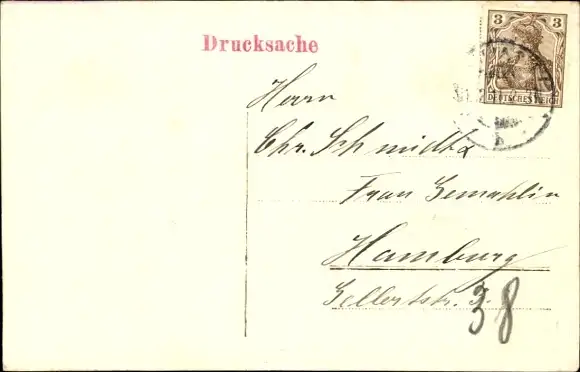 Drucksache
3 3
DEUTSCHES REICH
Herrn
Chr. Schmidt &
Frau Gemahlin
Hamburg
Gellertstr.
38